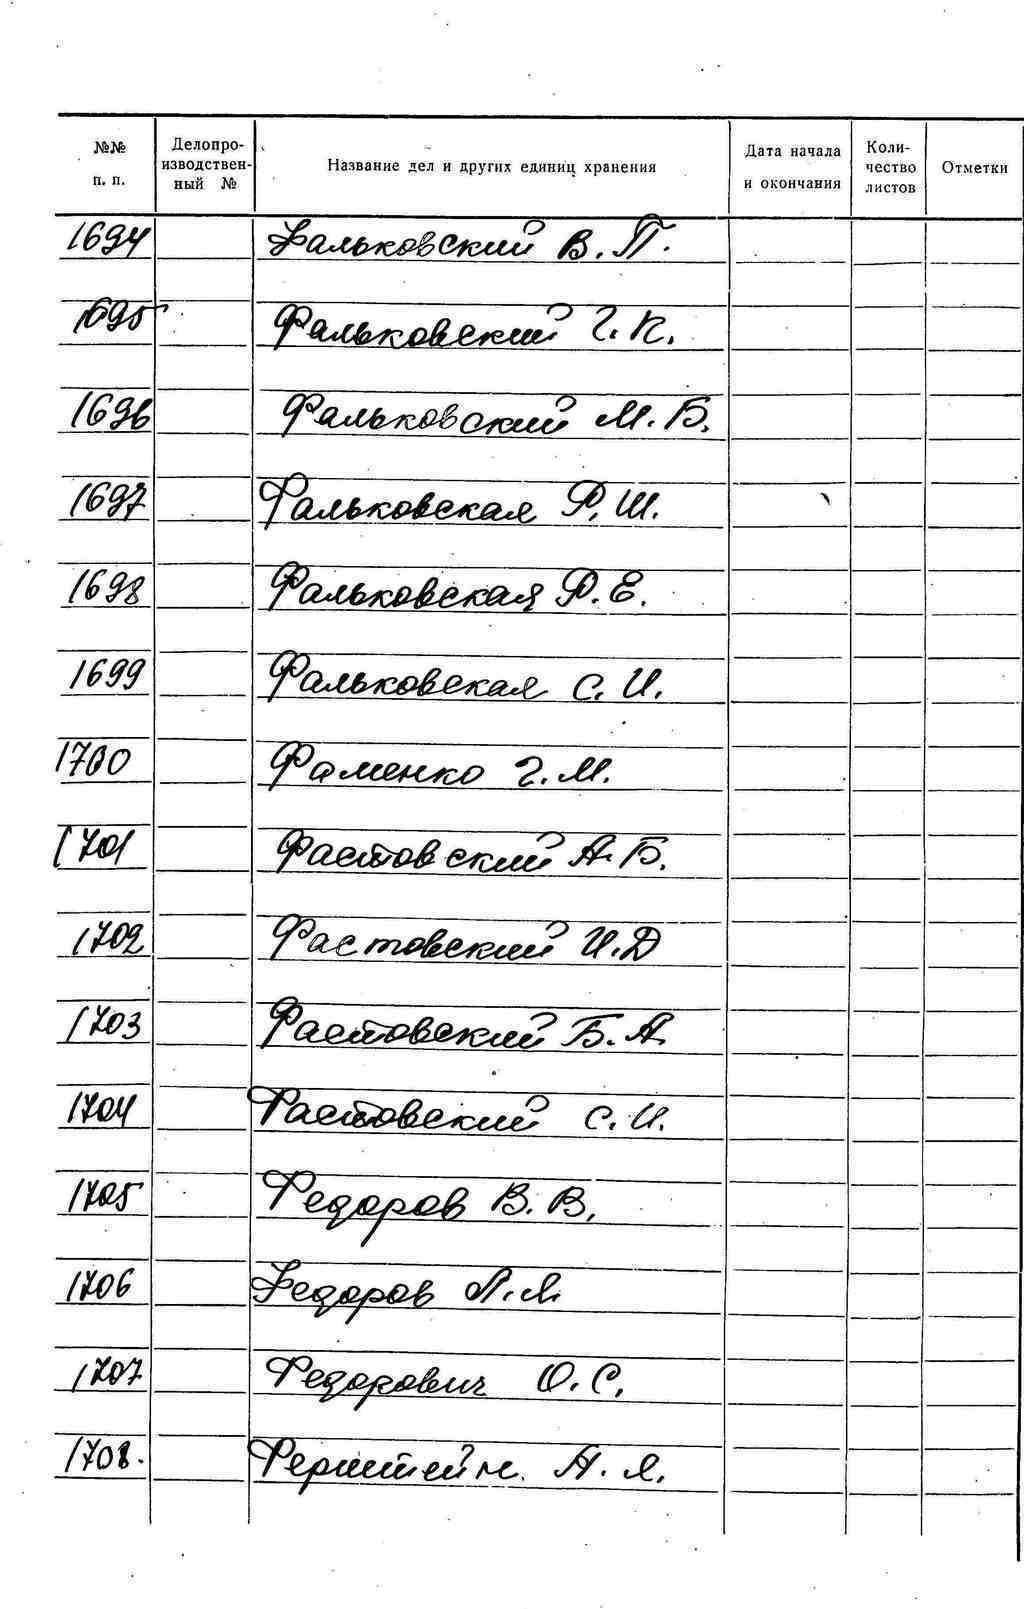 №№ п. п. Делопро-изводствен-ный № Название дел и других единиц хранения Дата начала и окончания Коли-чество листов Отметки
1694 Фальковский В. П.
1695 Фальковский Г. К.
1696 Фальковский М. Б.
1697 Фальковская Р. Ш.
1698 Фальковская Р. Е.
1699 Фальковская С. И.
1700 Фаменко Г. М.
1701 Фастовский А. Б.
1702 Фастовский И. Д
1703 Фастовский Б. А.
1704 Фастовский С. И.
1705 Федоров В. В.
1706 Федоров Л. Я.
1707 Федорович О. С.
1708. Ферштейн А. Я.